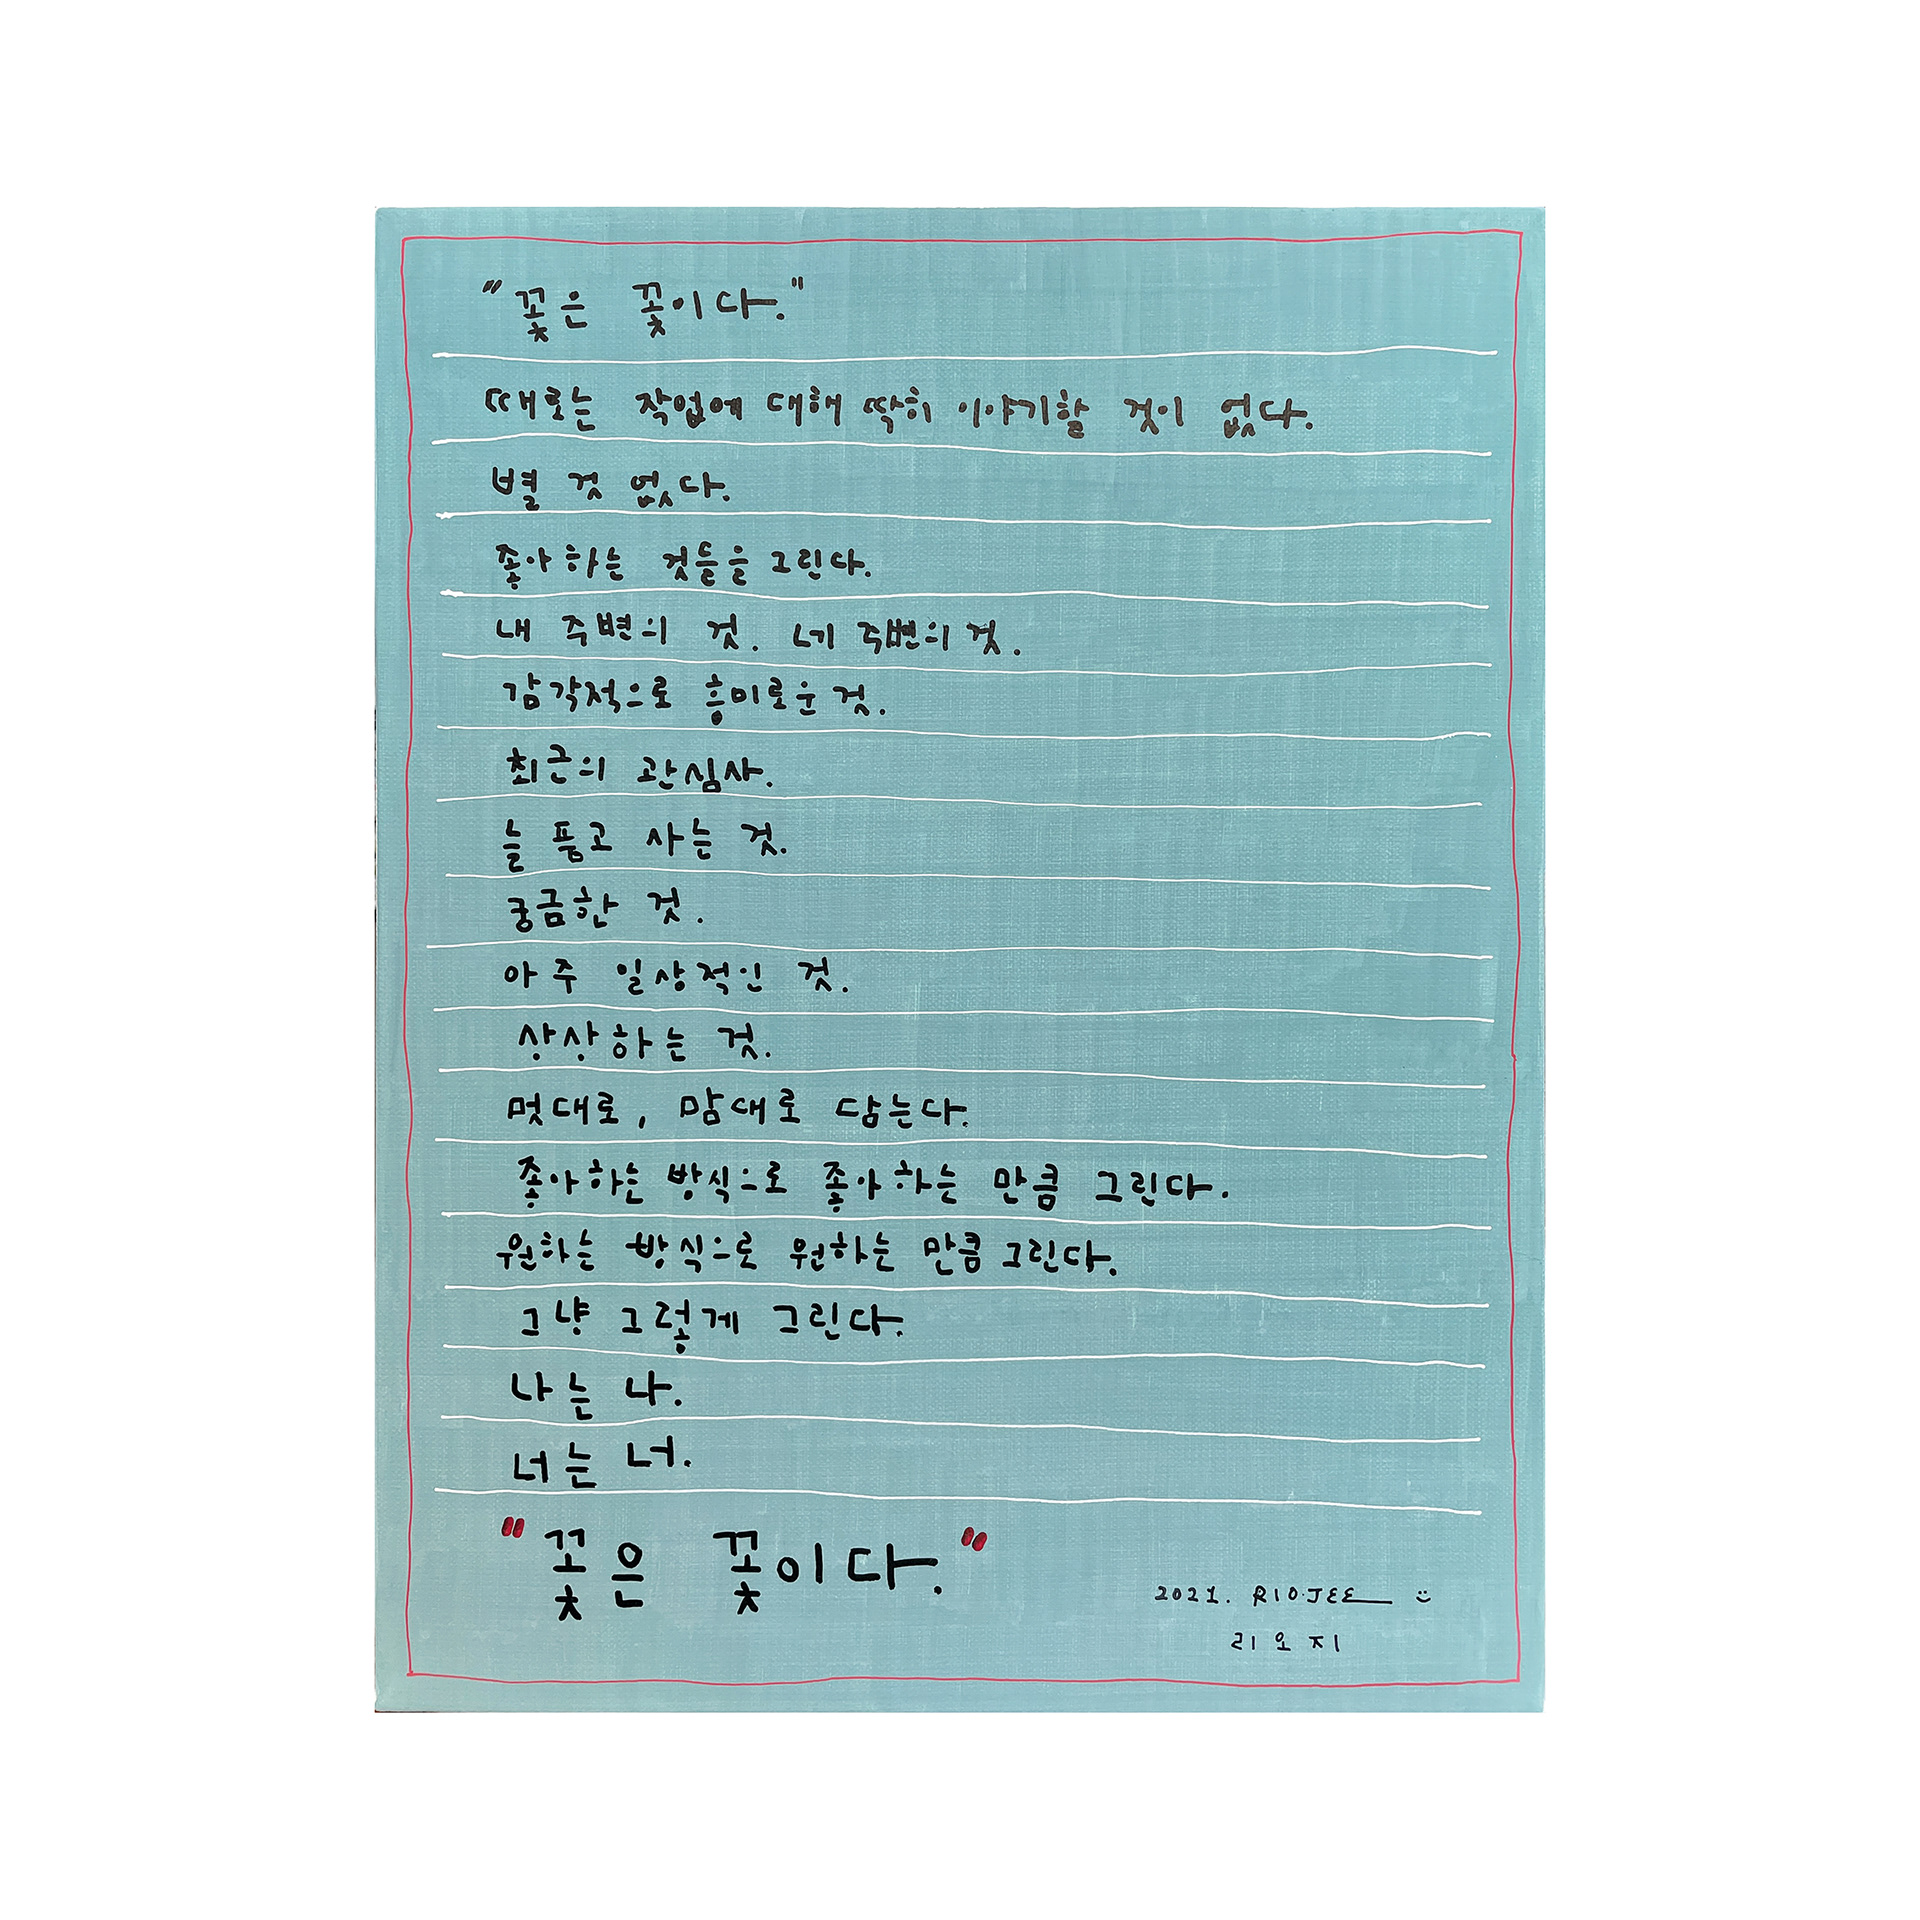 "꽃은 꽃이다."
때로는 작업에 대해 딱히 이야기할 것이 없다.
별 것 없다.
좋아하는 것들을 그린다.
내 주변의 것. 네 주변의 것.
감각적으로 흥미로운 것.
최근의 관심사.
늘 품고 사는 것.
궁금한 것.
아주 일상적인 것.
상상하는 것.
멋대로, 맘대로 담는다.
좋아하는 방식으로 좋아하는 만큼 그린다.
원하는 방식으로 원하는 만큼 그린다.
그냥 그렇게 그린다.
나는 나.
너는 너.
"꽃은 꽃이다."
2021. RIO.JEE
리오지